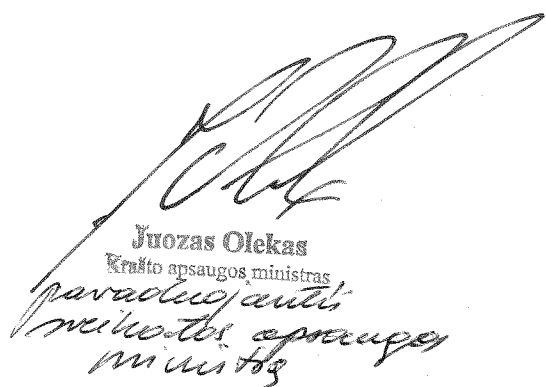 Juozas Olekas
Krašto apsaugos ministras
pavaduojantis
sveikatos apsaugos
ministrą